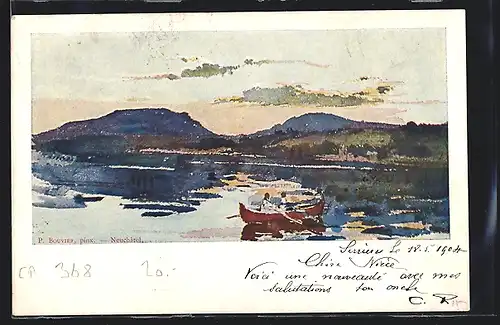 P. Bouvier, pinx. — Neuchâtel.
CP 368 20.-
Serrières le 18.1.1904
Chère Nièce
Voici une nouveauté avec mes
salutations ton oncle
C. R.